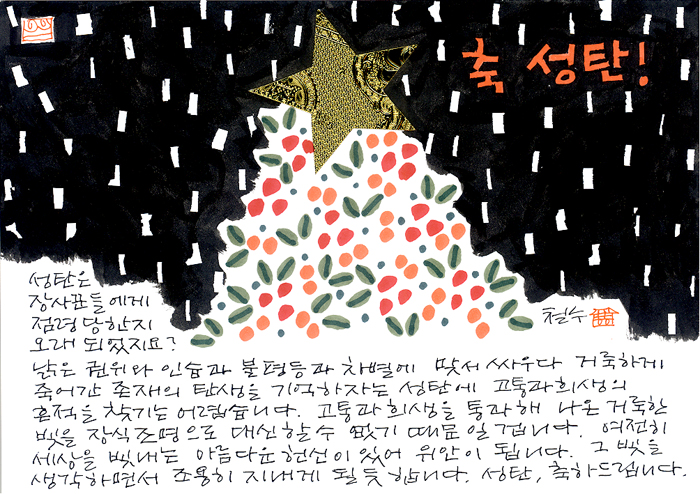 축 성탄!
성탄은
장사꾼들에게
점령 당한지
오래 되었지요?
철수
낡은 권위와 인습과 불평등과 차별에 맞서 싸우다 거룩하게
죽어간 존재의 탄생을 기억하자는 성탄에 고통과 희생의
흔적을 찾기는 어렵습니다. 고통과 희생을 통과해 나온 거룩한
빛을 장식 조명으로 대신할 수 없기 때문일겁니다. 여전히
세상을 빛내는 아름다운 헌신이 있어 위안이 됩니다. 그 빛을
생각하면서 조용히 지내게 될 듯 합니다. 성탄, 축하드립니다.